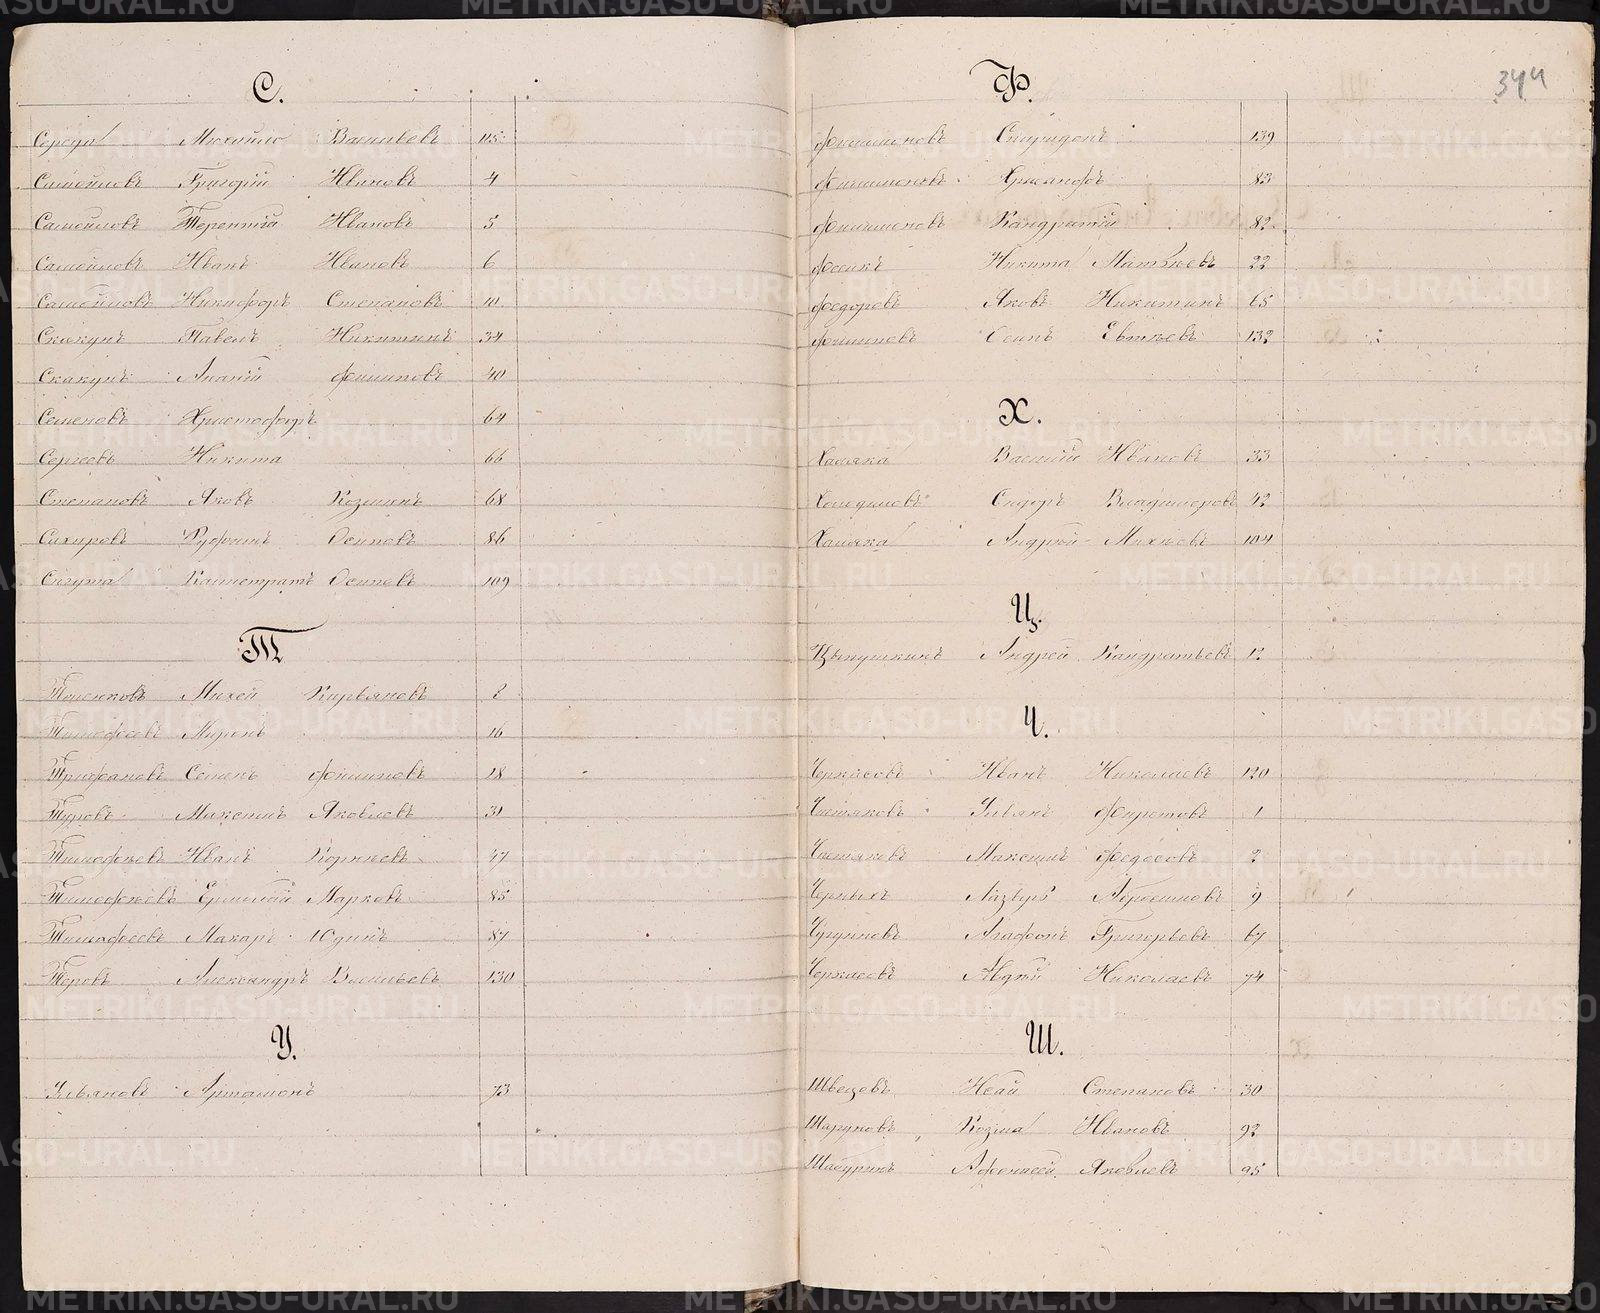 С.
Середа Михайло Васильевъ 115
Самойловъ Григорій Ивановъ 4
Самойловъ Терентій Ивановъ 5
Самойловъ Иванъ Ивановъ 6
Самойловъ Никифоръ Степановъ 10
Скакунъ Павелъ Никитинъ 34
Скакунъ Ананій Филиповъ 40
Семеновъ Христофоръ 64
Сергеевъ Никита 66
Степановъ Яковъ Козминъ 68
Сахаровъ Руфинъ Осиповъ 86
Снгута Калистратъ Осиповъ 109
Т
Михей 8
Тимофеевъ Миронъ 16
Трифановъ Семенъ Филиповъ 18
Туровъ Максимъ Яковлевъ 31
Тимофѣевъ Иванъ Корнѣевъ 47
Тимофѣевъ Ермолай Марковъ 85
Тимафеевъ Макаръ Юдинъ 87
Теровъ Александръ Васильевъ 130
У.
Ульяновъ Артамонъ 73
Ф.
344
Филимоновъ Спиридонъ 139
Филимоновъ Хрисанфъ 83
Филимоновъ Кандратій 82
Никита Матвѣевъ 22
Федоровъ Яковъ Никитинъ 65
Филиповъ Осипъ Евтѣевъ 132
Х.
Халяка Василій Ивановъ 33
Сидоръ Владимеровъ 42
Халяка Андрей Михѣевъ 104
Ц.
Цыпушкинъ Андрей Кандратьевъ 12
Ч.
Черкасовъ Иванъ Николаевъ 120
Чистяковъ Ульянъ 1
Чистяковъ Максимъ Федосовъ 2
Черныхъ Лазарь 9
Чугуновъ Агафонъ Григорьевъ 67
Черкасовъ Авдѣй Николаевъ 74
Ш.
Швецовъ Исай Степановъ 30
Шаруновъ Козма Ивановъ 92
Шабуринъ Афонасей Яковлевъ 95
METRIKI.GASO-URAL.RU